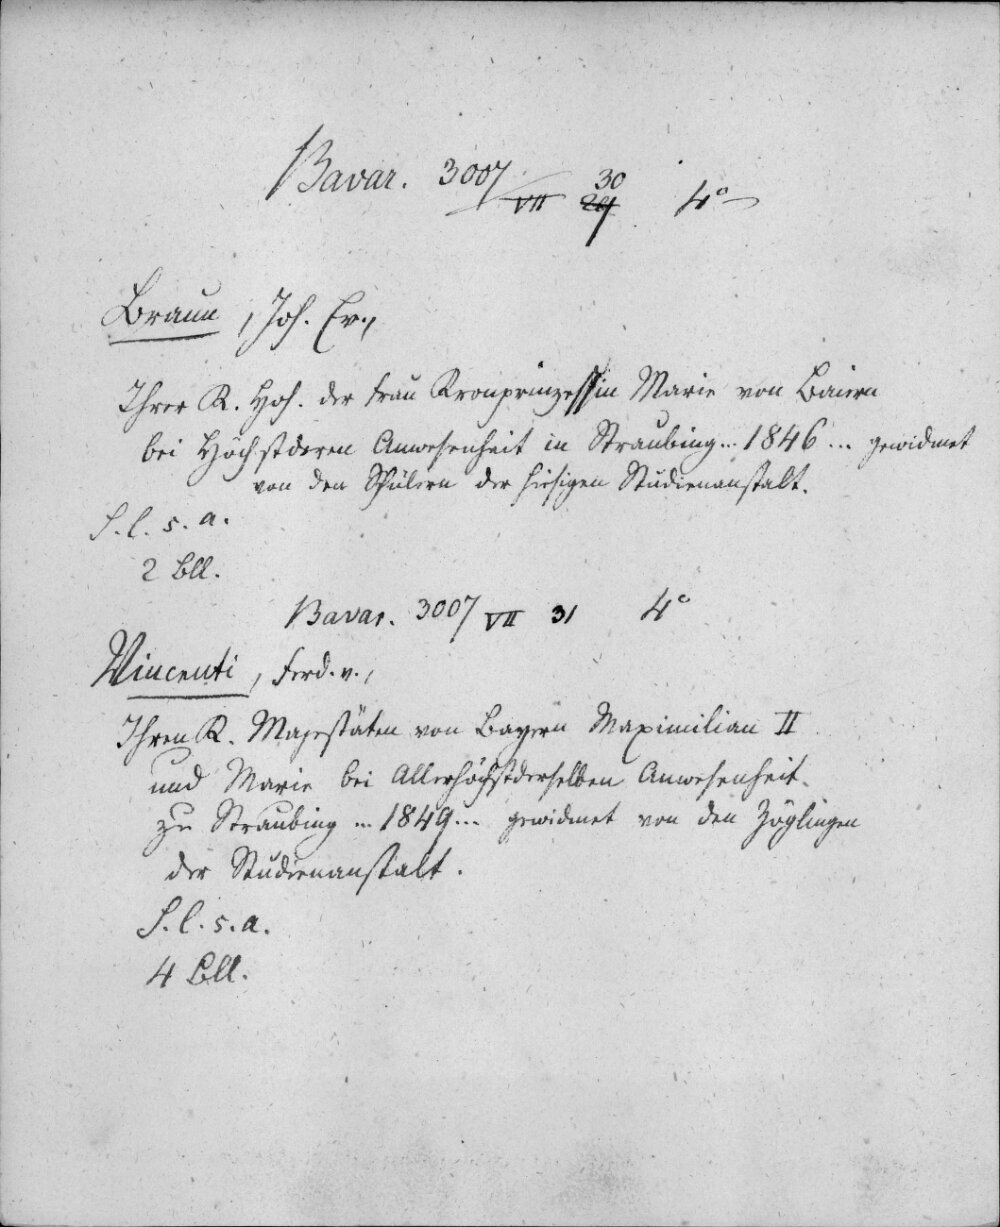 Bavar. 3007/VII 30 4°
Braun, Joh. Ev.,
Ihrer K. Hoh. der Frau Kronprinzessin Marie von Baiern
bei Höchstderen Anwesenheit in Straubing... 1846 ... gewidmet
von den Schülern der hiesigen Studienanstalt.
S. l. s. a.
2 Bll.
Bavar. 3007 VII 31 4°
Vincenti, Ferd. v.,
Ihren K. Majestäten von Bayern Maximilian II
und Marie bei Allerhöchstderselben Anwesenheit
zu Straubing ... 1849 ... gewidmet von den Zöglingen
der Studienanstalt.
S. l. s. a.
4 Bll.